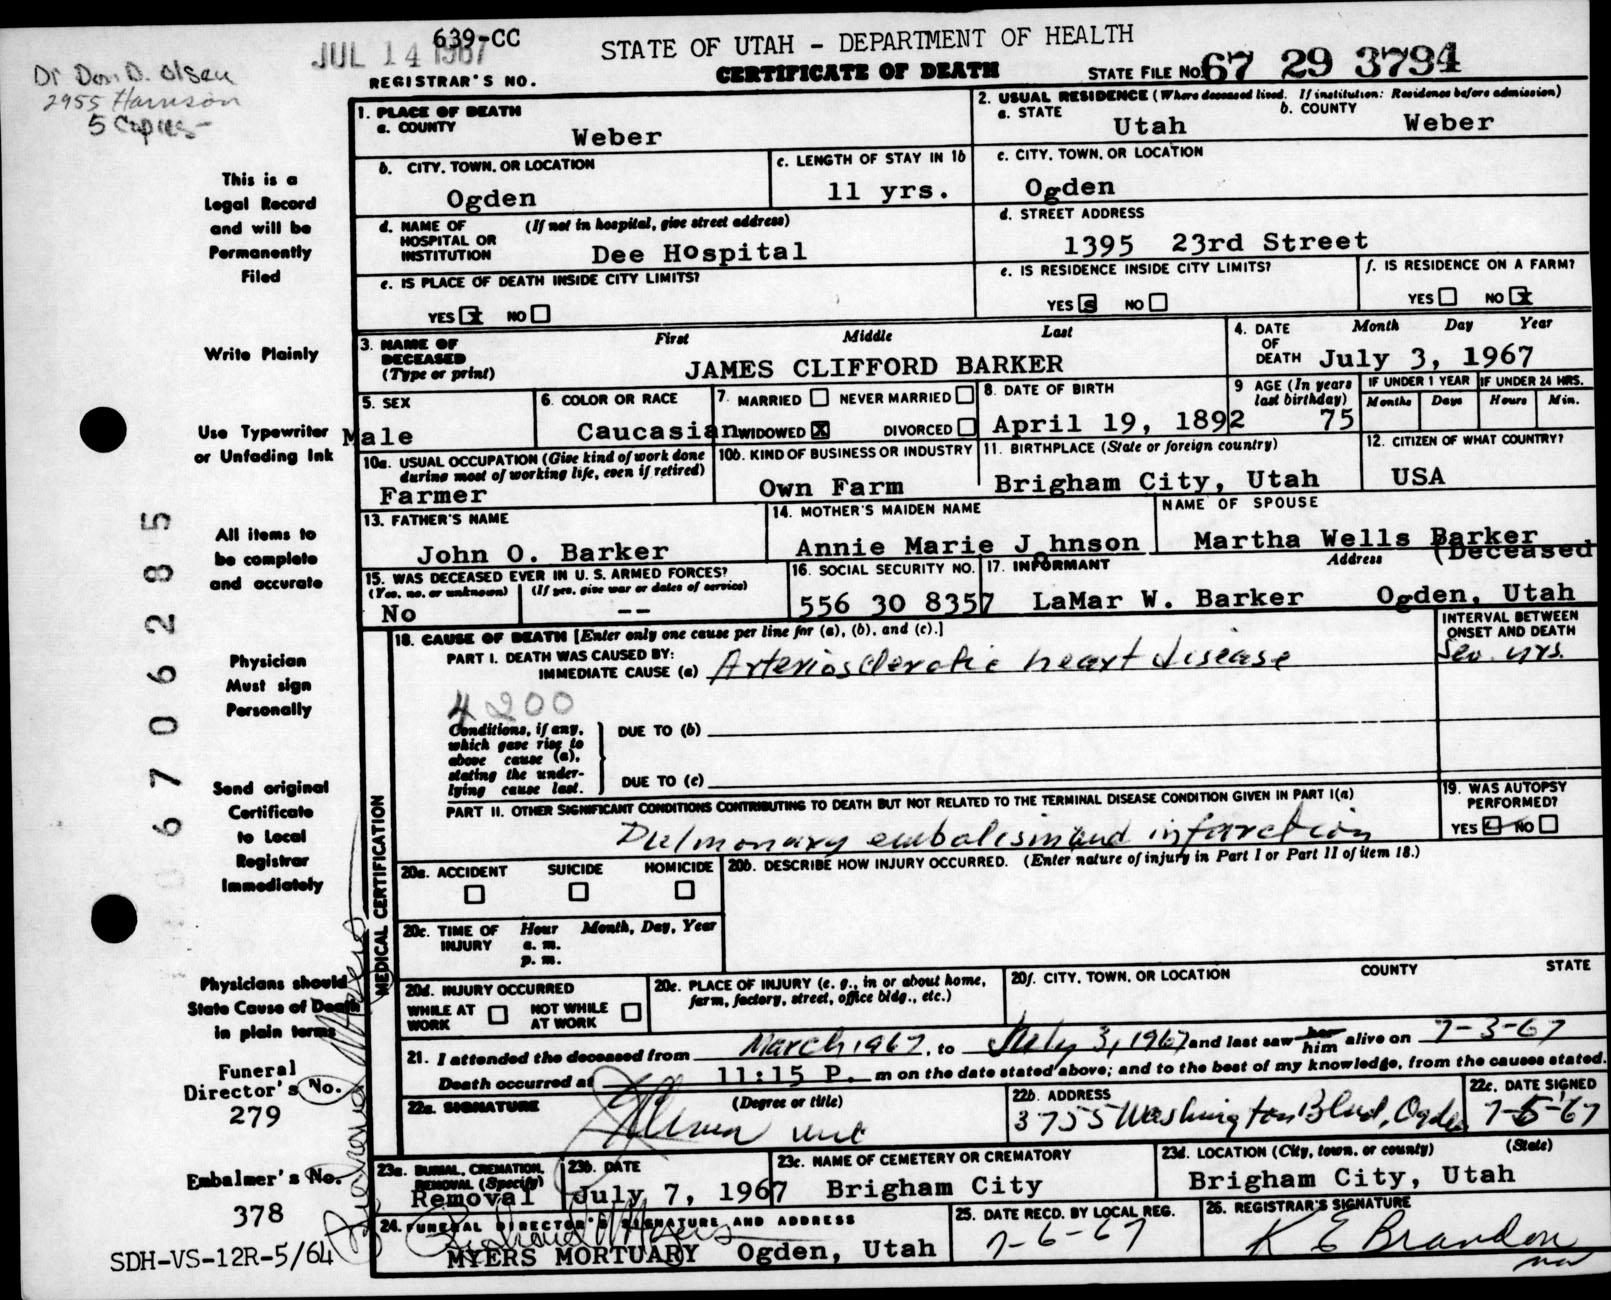 JUL 14 1967
639-CC
STATE OF UTAH - DEPARTMENT OF HEALTH
REGISTRAR'S NO.
CERTIFICATE OF DEATH
STATE FILE NO. 67 29 3794
Dr Don D. Olsen
2955 Harrison
5 Copies-
1. PLACE OF DEATH
a. COUNTY
Weber
2. USUAL RESIDENCE (Where deceased lived. If institution: Residence before admission)
a. STATE
Utah
b. COUNTY
Weber
b. CITY, TOWN, OR LOCATION
Ogden
c. LENGTH OF STAY IN 1b
11 yrs.
c. CITY, TOWN, OR LOCATION
Ogden
d. NAME OF HOSPITAL OR INSTITUTION
(If not in hospital, give street address)
Dee Hospital
d. STREET ADDRESS
1395 23rd Street
e. IS PLACE OF DEATH INSIDE CITY LIMITS?
YES x NO
e. IS RESIDENCE INSIDE CITY LIMITS?
YES s NO
f. IS RESIDENCE ON A FARM?
YES NO x
3. NAME OF DECEASED
(Type or print)
First Middle Last
JAMES CLIFFORD BARKER
4. DATE OF DEATH
Month Day Year
July 3, 1967
5. SEX
Male
6. COLOR OR RACE
Caucasian
7. MARRIED NEVER MARRIED
WIDOWED X DIVORCED
8. DATE OF BIRTH
April 19, 1892
9 AGE (In years last birthday)
75
IF UNDER 1 YEAR
Months Days
IF UNDER 24 HRS.
Hours Min.
10a. USUAL OCCUPATION (Give kind of work done
during most of working life, even if retired)
Farmer
10b. KIND OF BUSINESS OR INDUSTRY
Own Farm
11. BIRTHPLACE (State or foreign country)
Brigham City, Utah
12. CITIZEN OF WHAT COUNTRY?
USA
13. FATHER'S NAME
John O. Barker
14. MOTHER'S MAIDEN NAME
Annie Marie Johnson
NAME OF SPOUSE
Martha Wells Barker
(Deceased
15. WAS DECEASED EVER IN U. S. ARMED FORCES?
(Yes, no, or unknown) (If yes, give war or dates of service)
No --
16. SOCIAL SECURITY NO.
556 30 8357
17. INFORMANT
Address
LaMar W. Barker Ogden, Utah
18. CAUSE OF DEATH [Enter only one cause per line for (a), (b), and (c).]
INTERVAL BETWEEN ONSET AND DEATH
PART I. DEATH WAS CAUSED BY:
IMMEDIATE CAUSE (a) Arteriosclerotic heart disease
Sev. yrs.
4200
Conditions, if any,
which gave rise to
above cause (a),
stating the under-
lying cause last.
DUE TO (b)
DUE TO (c)
PART II. OTHER SIGNIFICANT CONDITIONS CONTRIBUTING TO DEATH BUT NOT RELATED TO THE TERMINAL DISEASE CONDITION GIVEN IN PART I(a)
Pulmonary embolism and infarction
19. WAS AUTOPSY PERFORMED?
YES NO
MEDICAL CERTIFICATION
20a. ACCIDENT SUICIDE HOMICIDE
20b. DESCRIBE HOW INJURY OCCURRED. (Enter nature of injury in Part I or Part II of item 18.)
20c. TIME OF INJURY
Hour Month, Day, Year
a. m.
p. m.
20d. INJURY OCCURRED
WHILE AT WORK NOT WHILE AT WORK
20e. PLACE OF INJURY (e. g., in or about home,
farm, factory, street, office bldg., etc.)
20f. CITY, TOWN, OR LOCATION COUNTY STATE
21. I attended the deceased from March 1967, to July 3, 1967 and last saw her him alive on 7-3-67
Death occurred at 11:15 P. m on the date stated above; and to the best of my knowledge, from the causes stated.
22a. SIGNATURE (Degree or title)
22b. ADDRESS
3755 Washington Blvd, Ogden
22c. DATE SIGNED
7-5-67
23a. BURIAL, CREMATION,
REMOVAL (Specify)
Removal
23b. DATE
July 7, 1967
23c. NAME OF CEMETERY OR CREMATORY
Brigham City
23d. LOCATION (City, town, or county) (State)
Brigham City, Utah
24. FUNERAL DIRECTOR'S SIGNATURE AND ADDRESS
MYERS MORTUARY Ogden, Utah
25. DATE RECD. BY LOCAL REG.
7-6-67
26. REGISTRAR'S SIGNATURE
K E Brandon
This is a
Legal Record
and will be
Permanently
Filed
Write Plainly
Use Typewriter
or Unfading Ink
All items to
be complete
and accurate
Physician
Must sign
Personally
Send original
Certificate
to Local
Registrar
Immediately
Physicians should
State Cause of Death
in plain terms
Funeral
Director's No.
279
Embalmer's No.
378
SDH-VS-12R-5/64
6706285